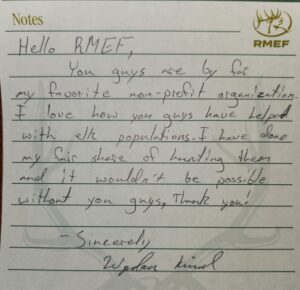 Notes
RMEF
Hello RMEF,
You guys are by far
my favorite non-profit organization.
I love how you guys have helped
with elk populations. I have done
my fair share of hunting them
and it wouldn't be possible
without you guys, Thank you!
- Sincerely